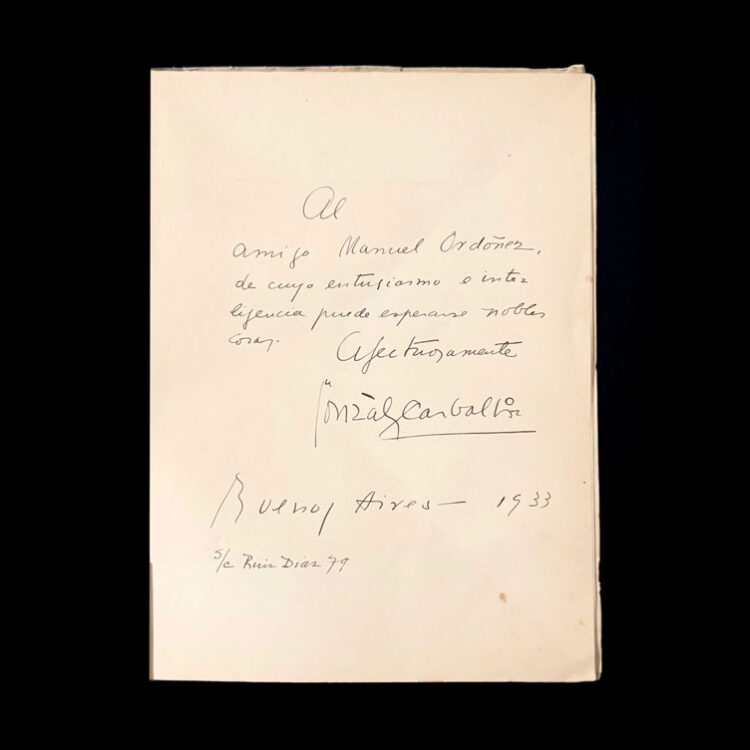 Al
amigo Manuel Ordóñez,
de cuyo entusiasmo e inte
ligencia puede esperarse nobles
cosas.
Afectuosamente
González Carbalho
Buenos Aires — 1933
s/c Ruiz Diaz 79